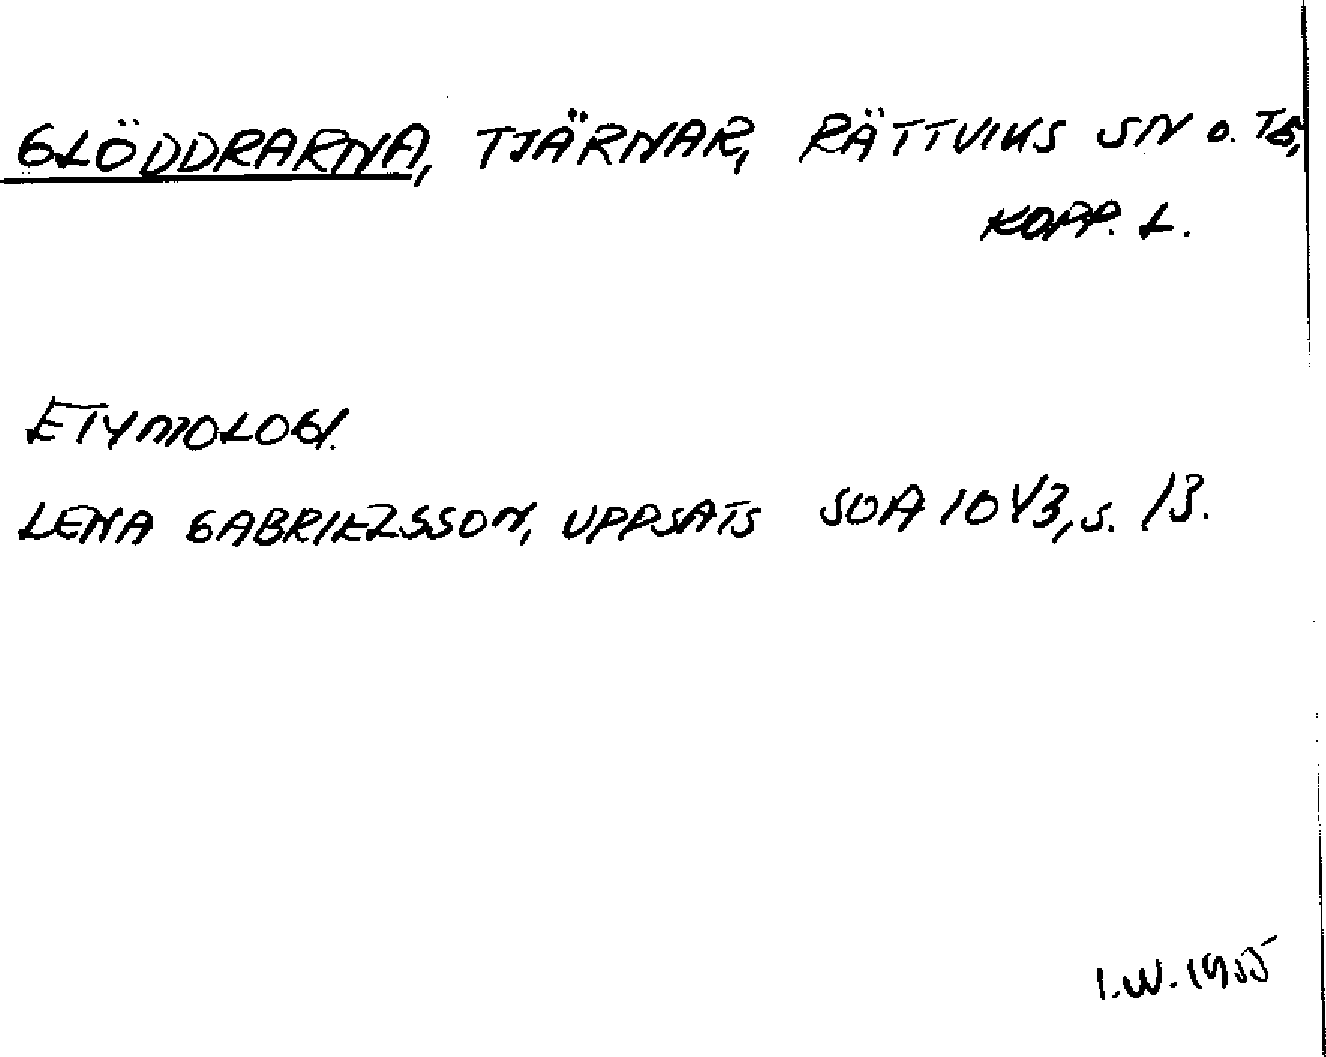 GLÖDDRARNA, TJÄRNAR, RÄTTVIKS SN O. TG,
KOPP. L.
ETYMOLOGI.
LENA GABRIELSSON, UPPSATS SOA 10 V3, S. 13.
I.W. 1955